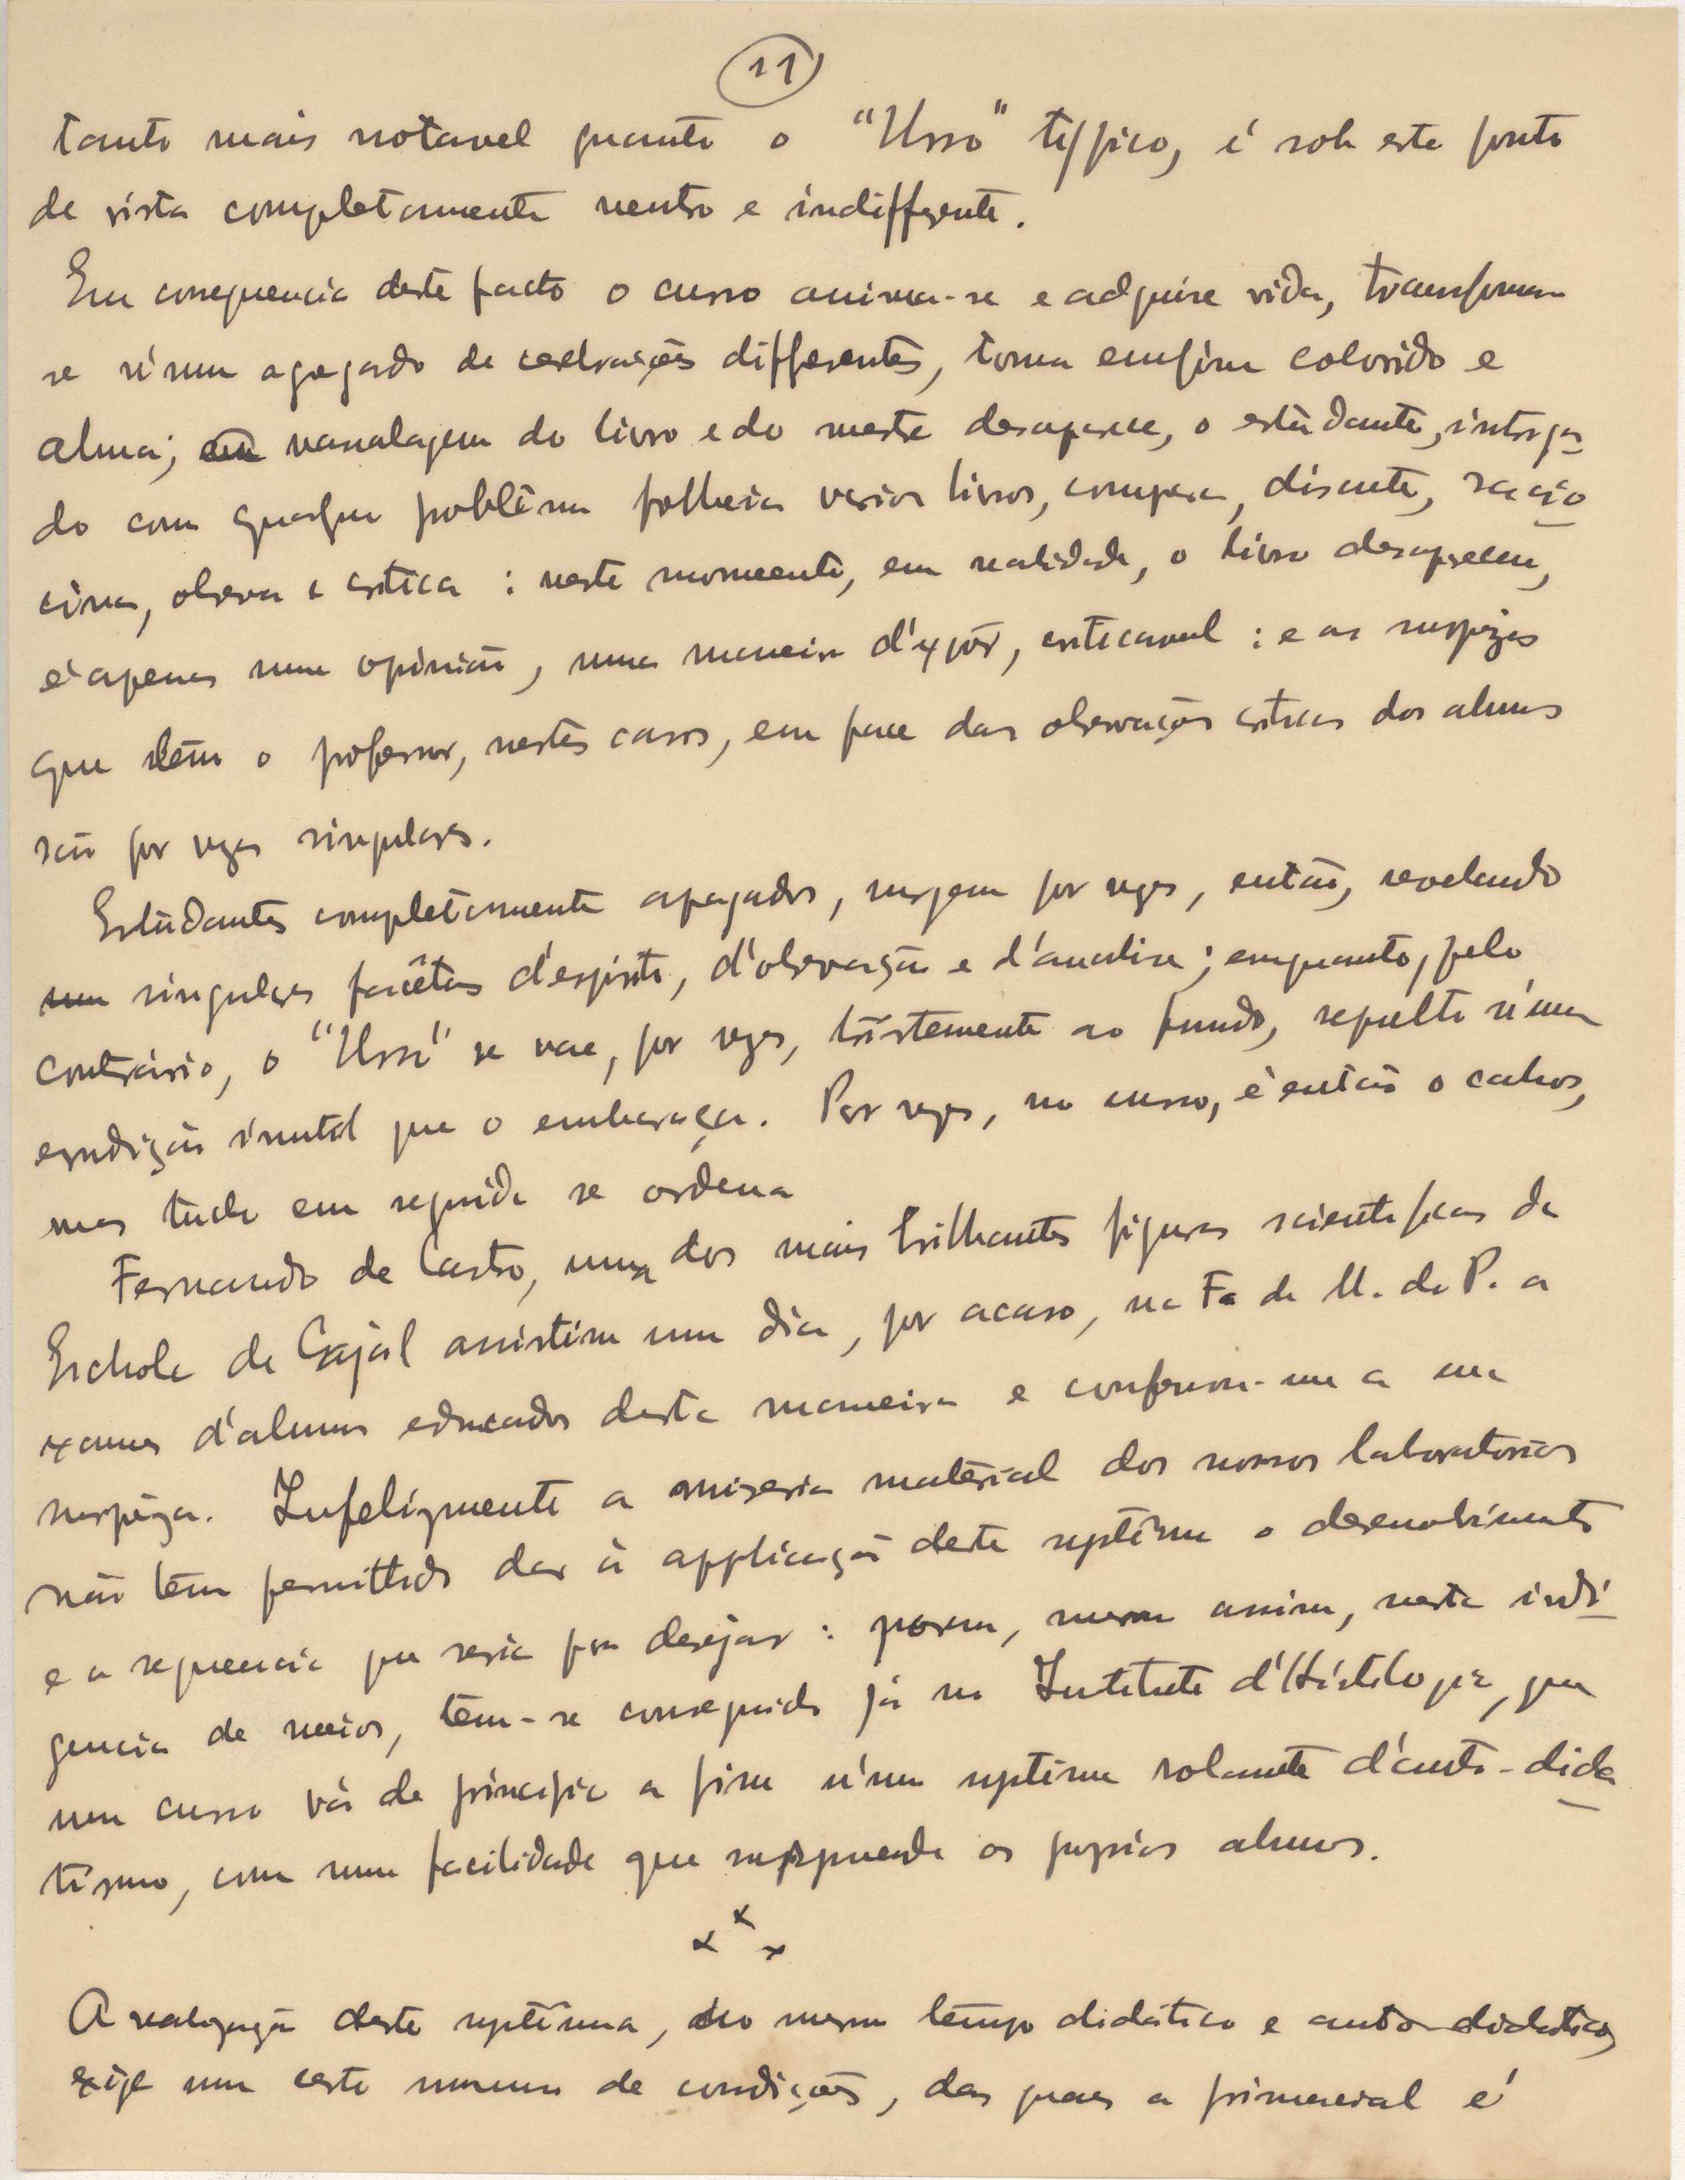 11
tanto mais notavel quanto o "Urso" typpico, é sob este ponto
de vista completamente neutro e indifferente.
Em consequencia deste facto o curso anima-se e adquire vida, transforma
se n'um agregado de cerebrações differentes, toma emfim colorido e
alma; a vassalagem do livro e do mestre desaparece, o estudante, intriga
do com qualquer problêma folheia varios livros, compara, discute, racio
cina, observa e critica: neste momento, em realidade, o livro desapareceu,
é apenas uma opinião, uma maneira d'expôr, criticavel: e as surprezas
que têm o professor, nestes casos, em face das observações criticas dos alunos
são por vezes singulares.
Estudantes completamente apagados, surgem por vezes, então, revelando
singulares facêtas d'espirito, d'observação e d'analise; emquanto, pelo
contrário, o "Urso" se vae, por vezes, tristemente ao fundo, sepulto n'uma
erudição inutil que o embaraça. Por vezes, no curso, é então o cahos,
mas tudo em seguida se ordena
Fernando de Castro, uma das mais brilhantes figuras scientificas da
Eschola de Cajál assistiu um dia, por acaso, na Fa de M. do P. a
exames d'alunos educados desta maneira e confessou-me a sua
surpreza. Infelizmente a miseria material dos nossos laboratorios
não têm permittido dar á applicação deste systêma o desenvolvimento
e a sequencia que seria para desejar: porem, mesmo assim, nesta indi
gencia de meios, têm-se conseguido já no Instituto d'Histologia, que
um curso vá de principio a fim n'um systema solamente d'auto-dida
tismo, com uma facilidade que surpreende os proprios alunos.
x x x
A realização deste systêma, ao mesmo tempo didático e auto-didatico,
exige um certo numero de condições, das quaes a primacial é